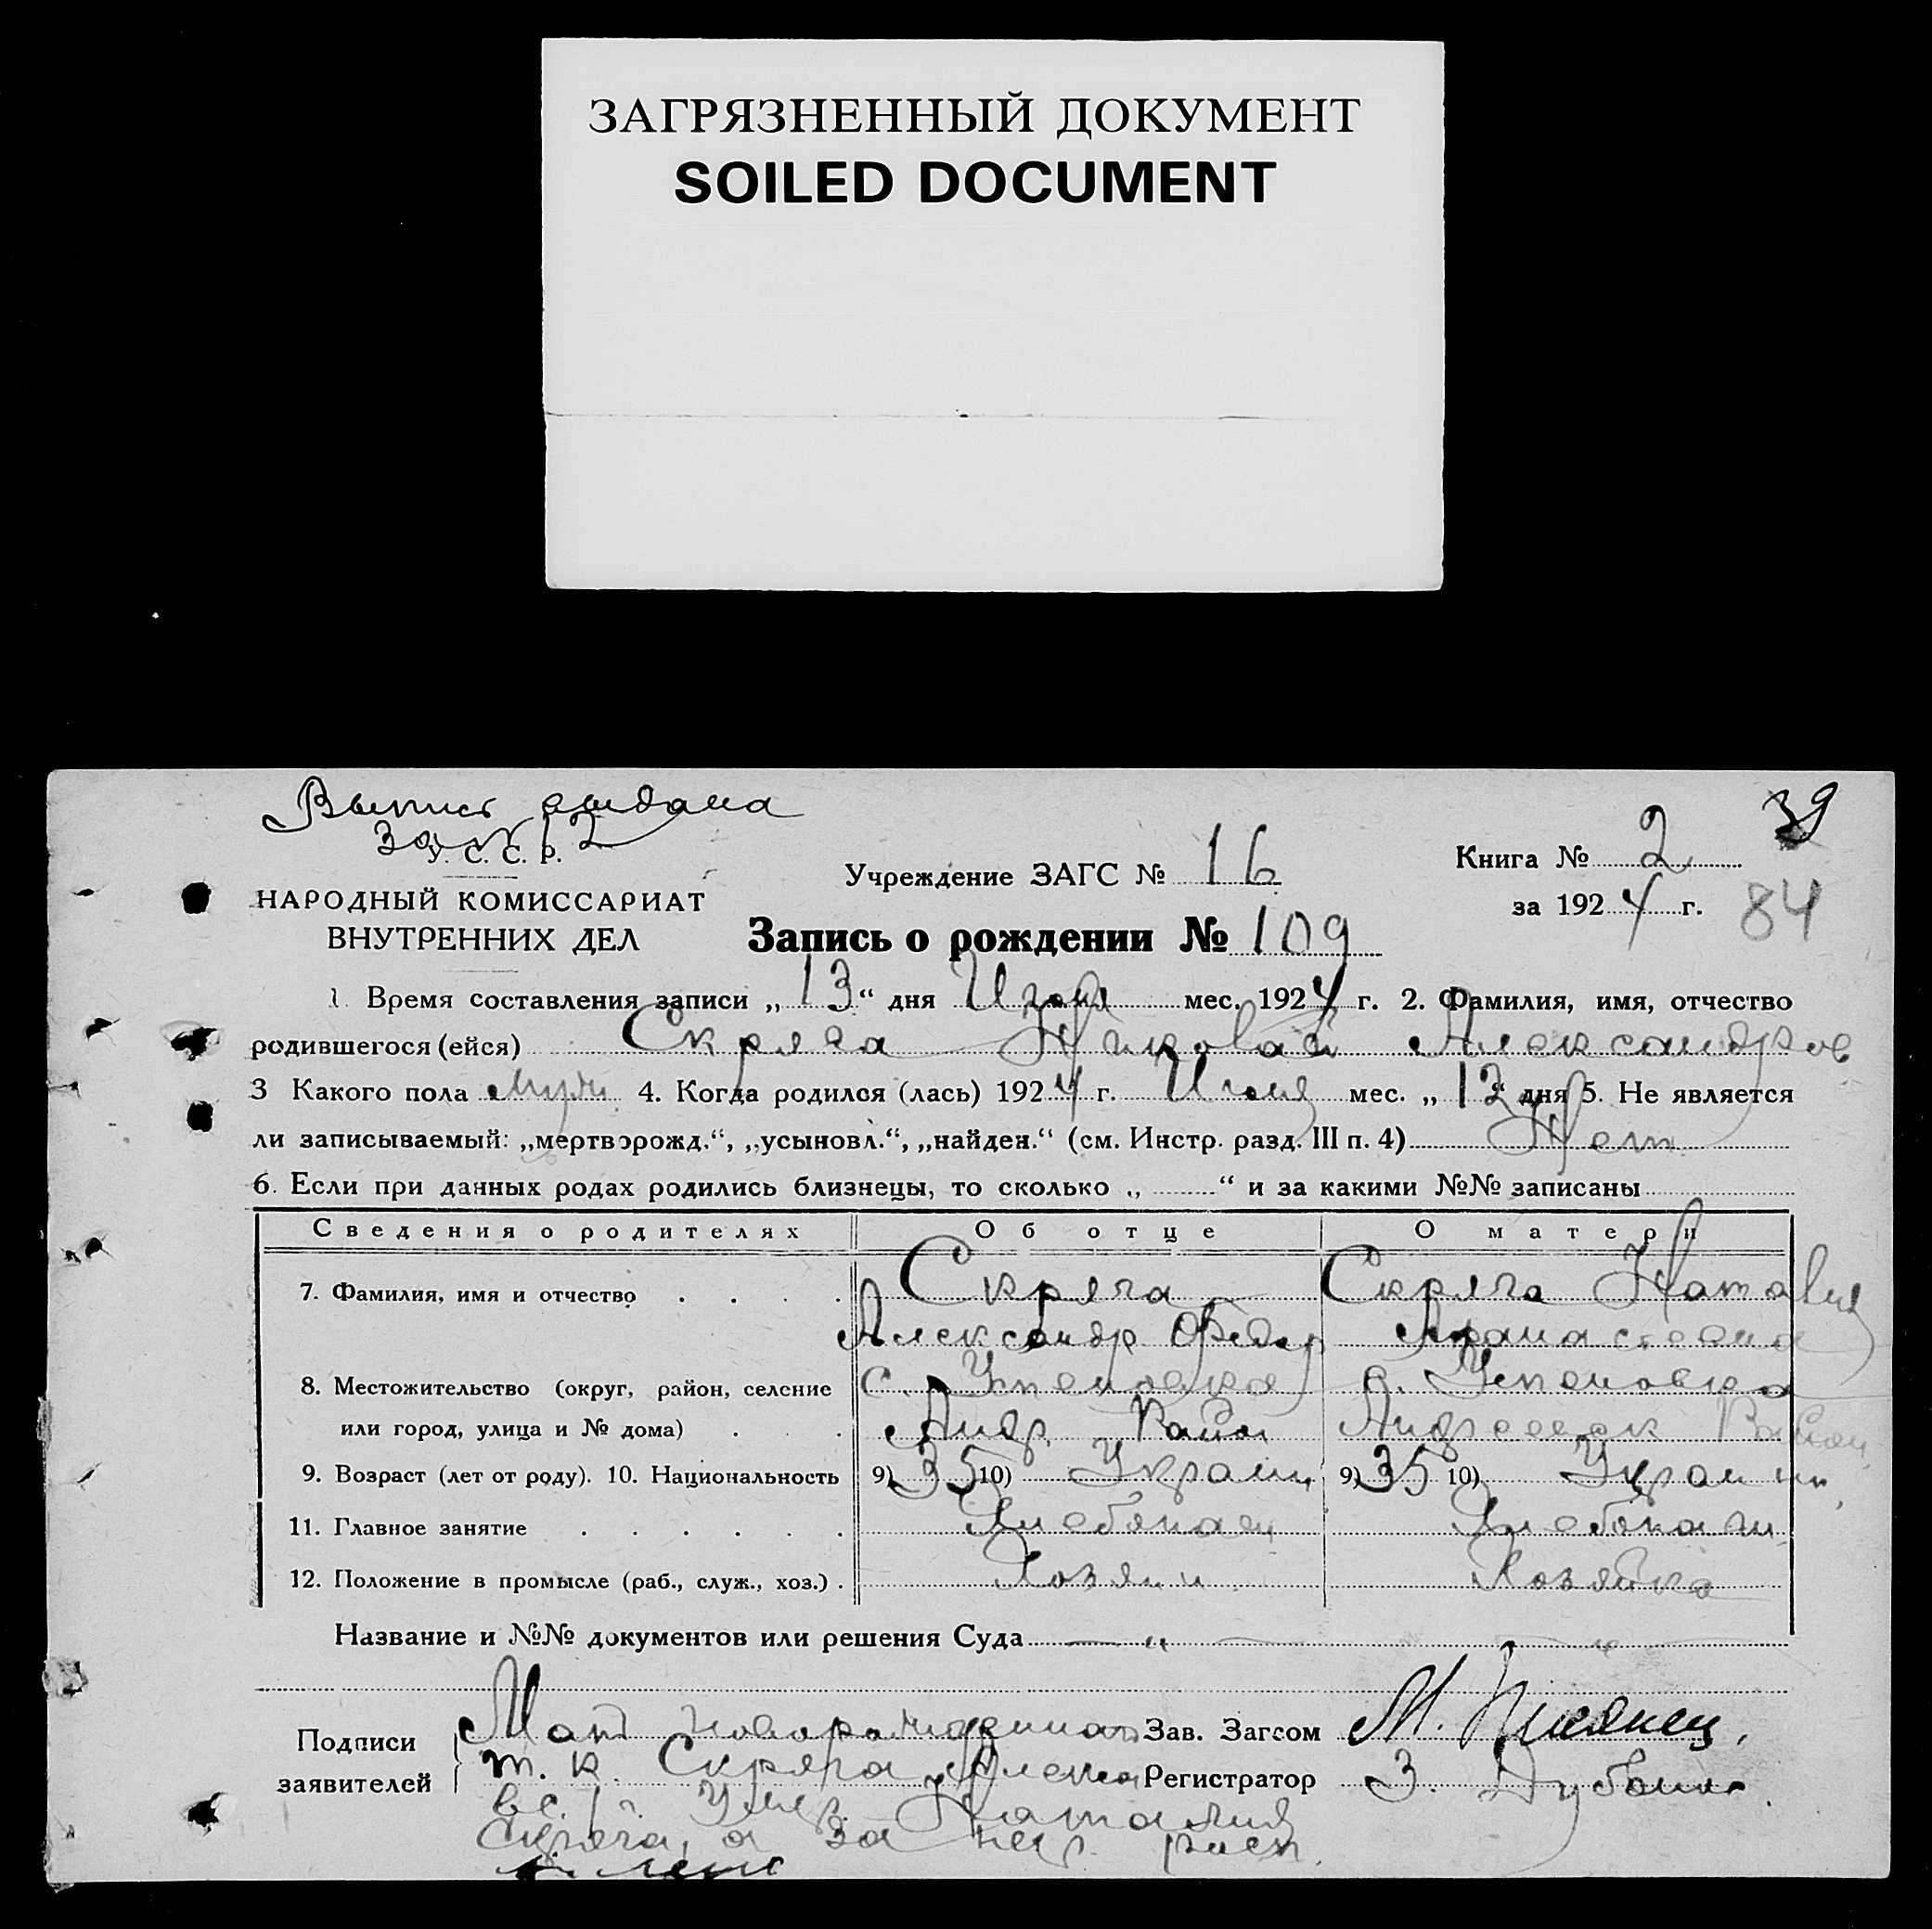 ЗАГРЯЗНЕННЫЙ ДОКУМЕНТ
SOILED DOCUMENT
Выпись выдана
за № 12
39
У. С. С. Р.
НАРОДНЫЙ КОМИССАРИАТ
ВНУТРЕННИХ ДЕЛ
Учреждение ЗАГС № 16
Книга № 2
за 1924 г. 84
Запись о рождении № 109
1 Время составления записи „13“ дня Июля мес. 1924 г. 2. Фамилия, имя, отчество
родившегося (ейся) Скряга Николай Александров
3 Какого пола муж. 4. Когда родился (лась) 1924 г. Июля мес. „12“ дня 5. Не является
ли записываемый: „мертворожд.“, „усыновл.“, „найден.“ (см. Инстр. разд. III п. 4) Нет
6. Если при данных родах родились близнецы, то сколько „ “ и за какими №№ записаны
Сведения о родителях Об отце О матери
7. Фамилия, имя и отчество Скряга Скряга Наталия
Александр Федор Афанасьевна
8. Местожительство (округ, район, селение с. Успеновка с. Успеновка
или город, улица и № дома) Андр. Район Андреевск Район
9. Возраст (лет от роду). 10. Национальность 9) 35 10) Украин 9) 35 10) Украин
11. Главное занятие Хлебопашец Хлебопаш
12. Положение в промысле (раб., служ., хоз.) Хозяин Хозяйка
Название и №№ документов или решения Суда — „ — — „ —
Подписи заявителей
Мать новорожденного
т. к. Скряга
Наталия
Скряга, а за нее расп.
Зав. Загсом М.
Регистратор З.